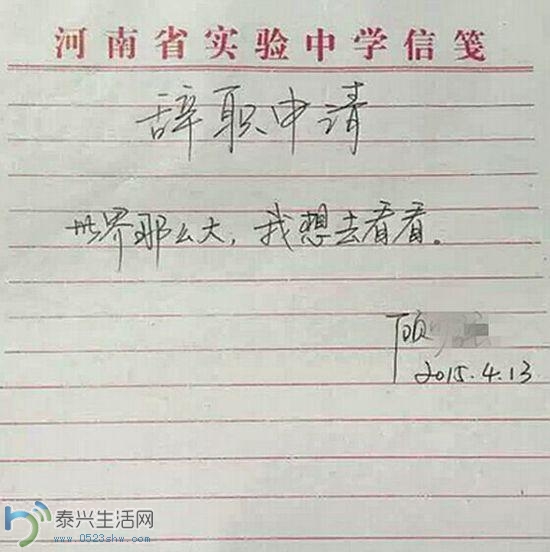 河南省实验中学信笺
辞职申请
世界那么大，我想去看看。
顾
2015.4.13
泰兴生活网
www.0523shw.com